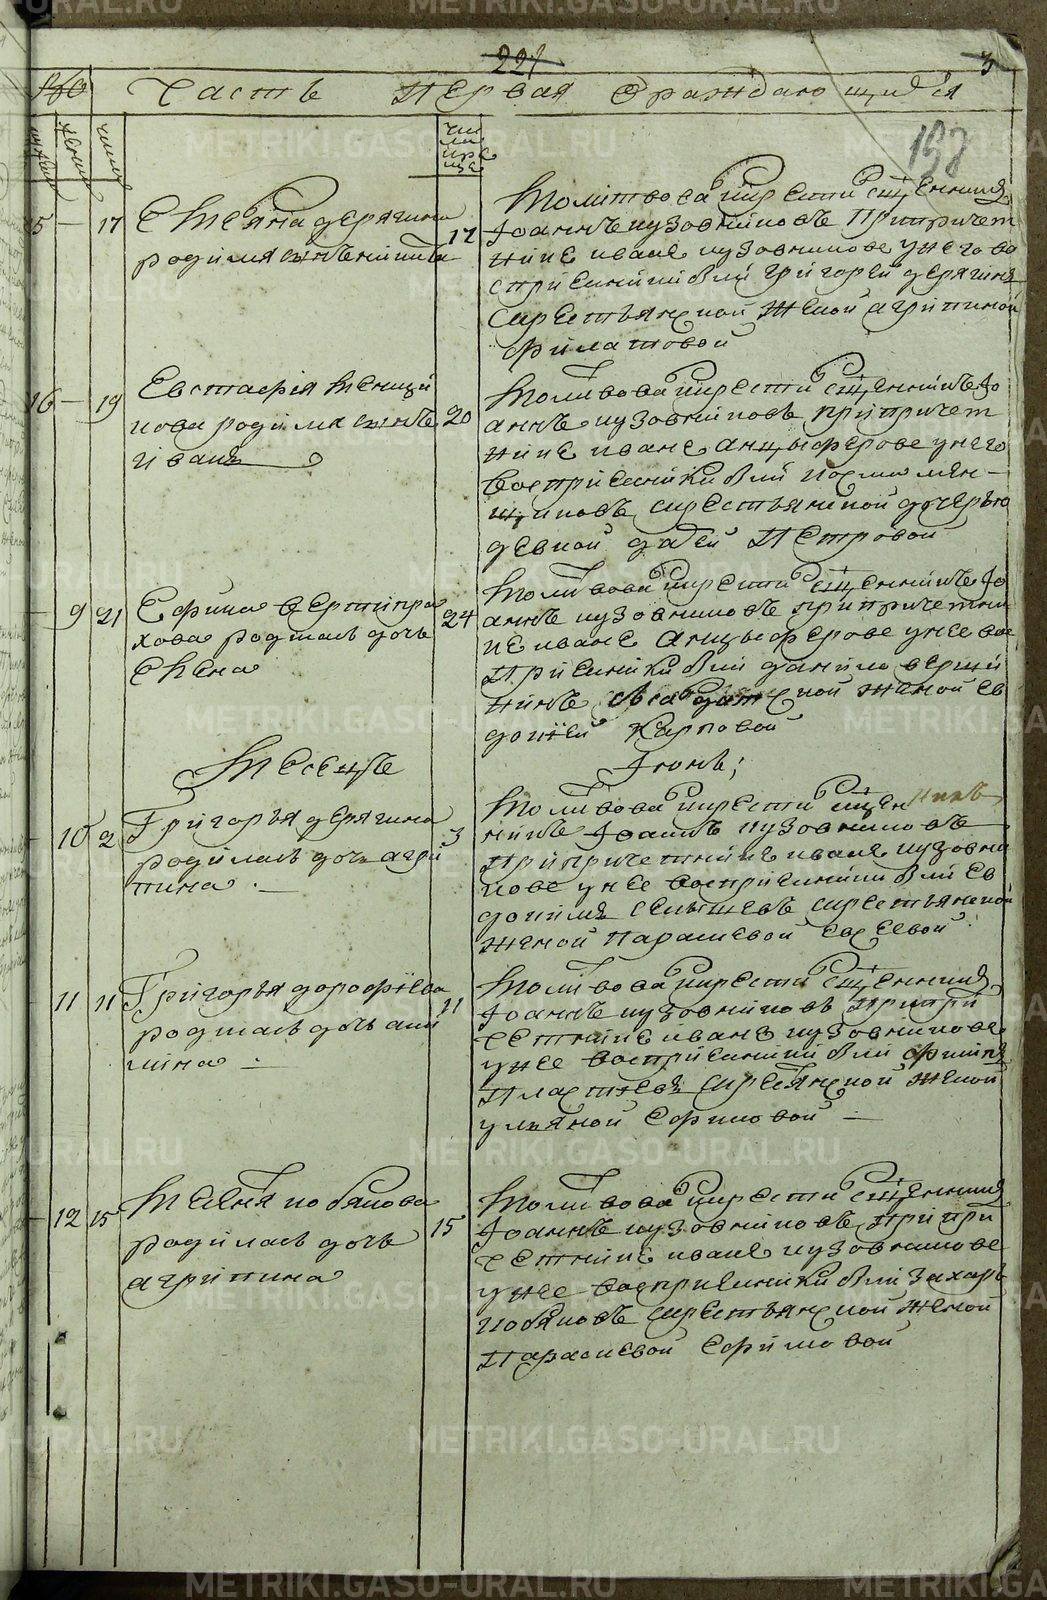 227
3
Часть Первая Ораждающихся
198
числа
числа
креще
15 — 17
Емеляна дерягина
родился сынъ никита
17
молитвовалъ и крестилъ священникъ
Iоаннъ кузовниковъ При причет
нике иване кузовникове у него во
сприемники были григорей дерягинъ
с крестьянской женой агрипиной
филатовой
16 — 19
Евстафiя
родился сынъ
иванъ
20
молитвовалъ и крестилъ священникъ Iо
аннъ кузовниковъ при причет
нике иване анцыферове у него
восприемники были
крестьянской дочерью
девкой дарьей Петровой
9 21
Ефима
родилась дочь
елена
24
молитвовалъ и крестилъ священникъ Iо
аннъ кузовниковъ при причетни
ке иване анцыферове у нее вос
приемники были данило верши
нинъ с солдатской женой ев
докией Карповой
Месецъ
Iюнь;
10 2
Григорья дерягина
родилась дочь агри
пина
3
молитвовалъ и крестилъ священникъ
никъ Iоаннъ кузовниковъ
при причетнике иване кузовни
кове у нее восприемники были Ев
доким крестьянской
женой парасковьей Евсеевой
11 11
Григорья дорофеева
родилась дочь аки
лина
11
молитвовалъ и крестилъ священникъ
Iоаннъ кузовниковъ При при
четнике иване кузовникове
у нее восприемники были
крестьянской женой
ульяной Ефимовой —
12 15
кобякова
родилась дочь
агрипина
15
молитвовалъ и крестилъ священникъ
Iоаннъ кузовниковъ При при
четнике иване кузовникове
у нее восприемники были захаръ
кобяковъ с крестьянской женой
Парасковьей Ефимовой
METRIKI.GASO-URAL.RU